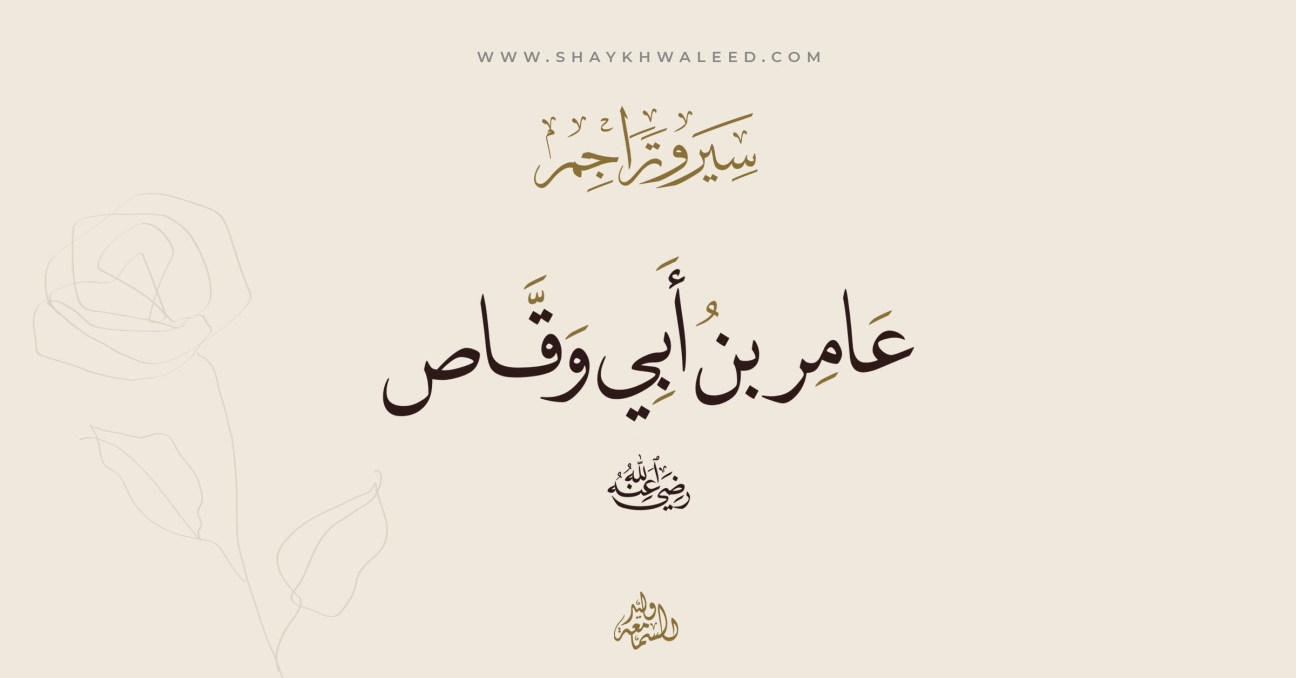 WWW.SHAYKHWALEED.COM
سِيَر وتَرَاجِم
عَامِر بنُ أَبِي وَقَّاص
رضي الله عنه
وليد السمامعة